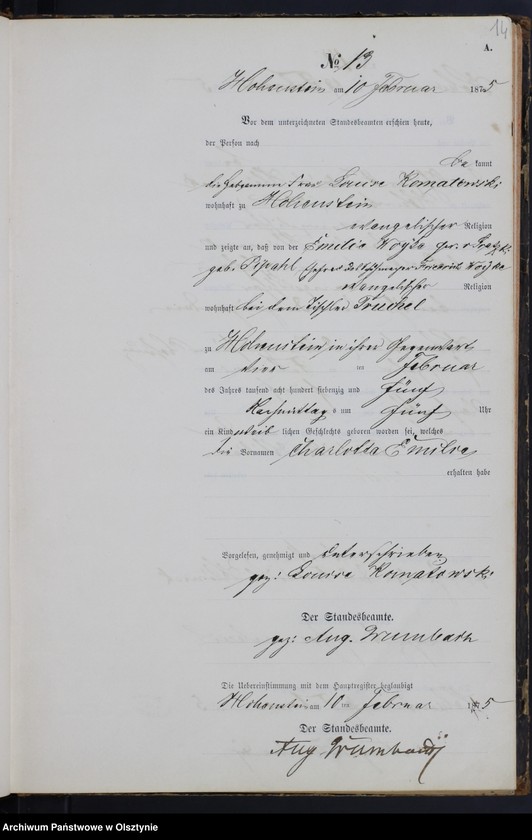 14
A.
No 13
Hohenstein am 10 Februar 1875
Vor dem unterzeichneten Standesbeamten erschien heute,
der Person nach
bekannt
die Hebamme Frau Louise Romatowski
wohnhaft zu Hohenstein
evangelischer Religion
und zeigte an, daß von der Emilie Woyda
geb.
evangelischer Religion
wohnhaft bei dem Tischler
zu Hohenstein in ihrer Gegenwart
am vier ten Februar
des Jahres tausend acht hundert siebenzig und fünf
Nachmittags um fünf Uhr
ein Kind weiblichen Geschlechts geboren worden sei, welches
die Vornamen Charlotta Emilie
erhalten habe
Vorgelesen, genehmigt und unterschrieben
gez: Louise Romatowski
Der Standesbeamte.
gez: Aug. Grumbach
Die Uebereinstimmung mit dem Hauptregister beglaubigt
Hohenstein am 10 ten Februar 1875
Der Standesbeamte.
Aug Grumbach
Archiwum Państwowe w Olsztynie